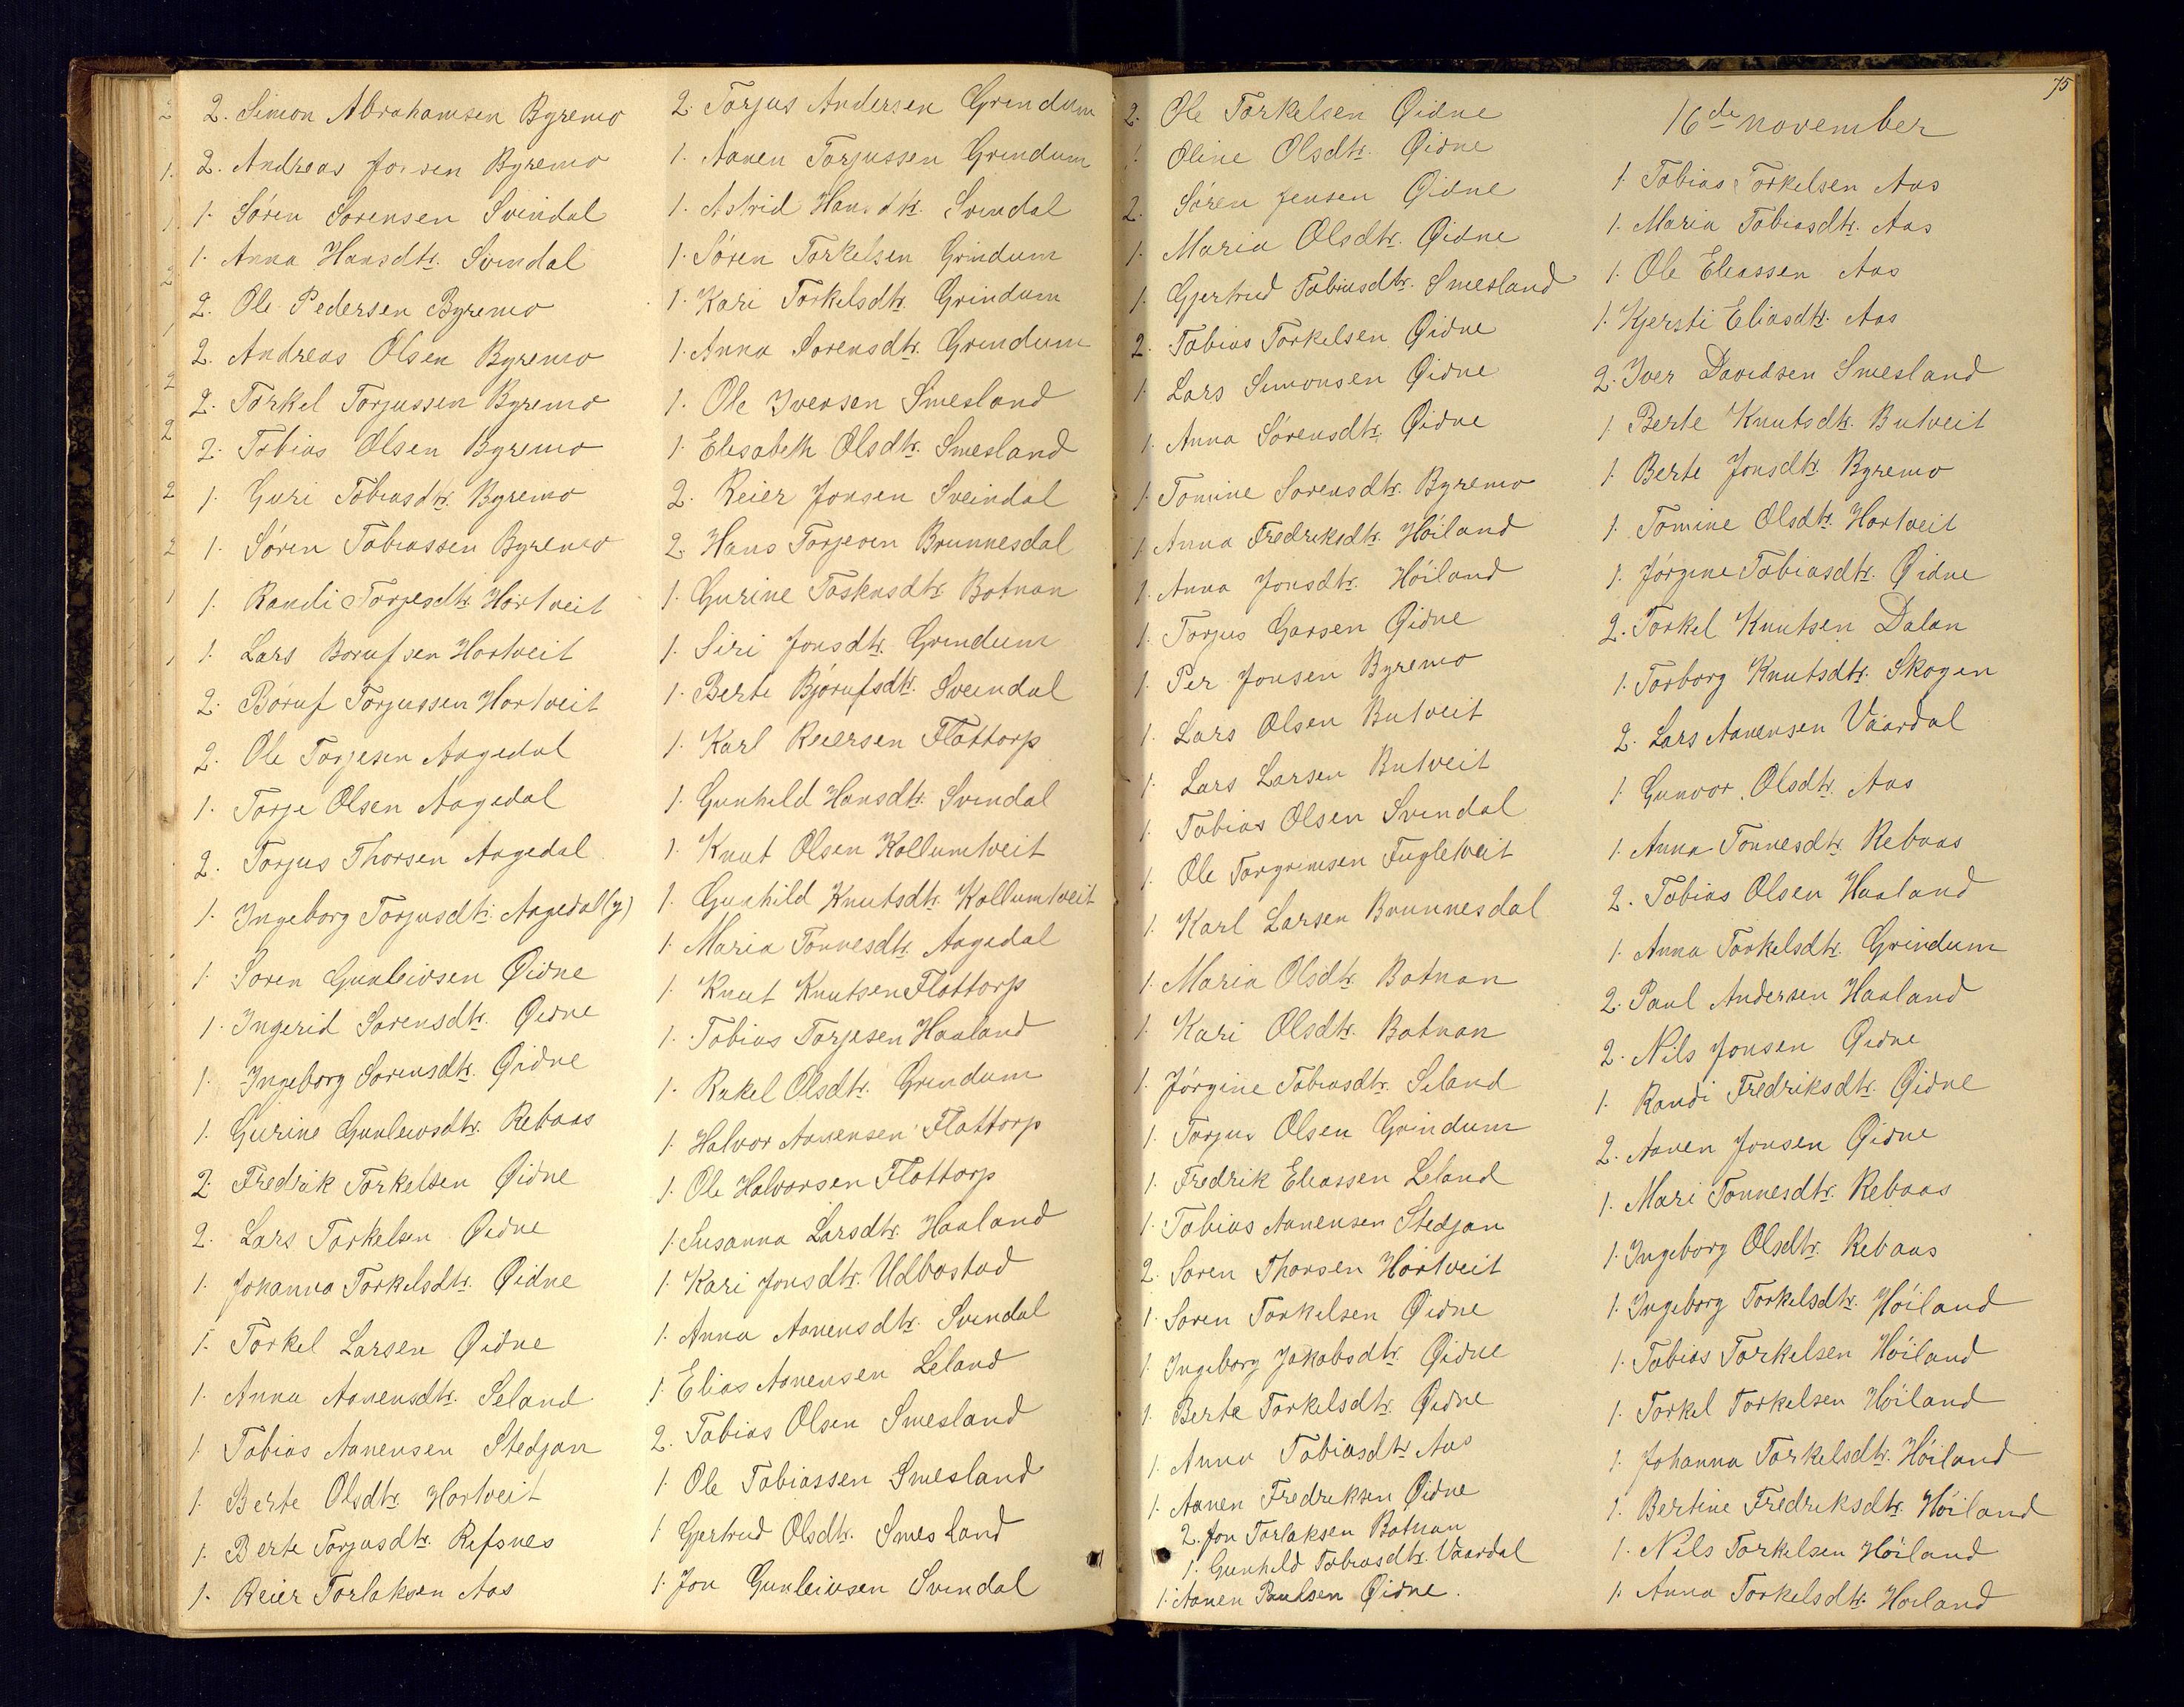 2. Simon Abrahamsen Byremo
2. Andreas Jonsen Byremo
1. Sören Sörensen Svindal
1. Anna Hansdtr. Svindal
2. Ole Pedersen Byremo
2. Andreas Olsen Byremo
2. Torkel Torjussen Byremo
2. Tobias Olsen Byremo
1. Guri Tobiasdtr. Byremo
1. Sören Tobiassen Byremo
1. Randi Torjesdtr. Hortveit
1. Lars Borufsen Hortveit
2. Böruf Torjussen Hortveit
2. Ole Torjesen Aagedal
1. Torje Olsen Aagedal
2. Torjus Thorsen Aagedal
1. Ingeborg Torjusdtr. Aagedal (y)
1. Soren Gunleivsen Øidne
1. Ingerid Sorensdtr. Øidne
1. Ingeborg Sorensdtr. Øidne
1. Gurine Gunleivsdtr. Rebaas
2. Fredrik Torkelsen Øidne
2. Lars Torkelsen Øidne
1. Johanna Torkelsdtr. Øidne
1. Torkel Larsen Øidne
1. Anna Aanensdtr. Seland
1. Tobias Aanensen Stedjan
1. Berte Olsdtr. Hortveit
1. Berte Torjusdtr. Refsnes
1. Reier Torlaksen Aas
2. Torjus Andersen Grindum
1. Aanen Torjussen Grindum
1. Astrid Hansdtr. Svindal
1. Sören Torkelsen Grindum
1. Kari Torkelsdtr. Grindum
1. Anna Sorensdtr. Grindum
1. Ole Iversen Smesland
1. Elisabeth Olsdtr. Smesland
2. Reier Jonsen Sveindal
2. Hans Torjesen Brunnesdal
1. Gurine Taskensdtr. Botnan
1. Siri Jonsdtr. Grindum
1. Berte Bjórufsdtr. Sveindal
1. Karl Reiersen Flottorp
1. Gunhild Hansdtr. Svindal
1. Knut Olsen Kollumtveit
1. Gunhild Knutsdtr. Kollumtveit
1. Maria Tonnesdtr. Aagedal
1. Knut Knutsen Flottorp
1. Tobias Torjesen Haaland
1. Rakel Olsdtr. Grindum
1. Halvor Aanensen Flottorp
1. Ole Halvorsen Flottorp
1. Susanna Larsdtr. Haaland
1. Kari Jonsdtr. Udbostad
1. Anna Aanensdtr. Svindal
1. Elias Aanensen Leland
2. Tobias Olsen Smesland
1. Ole Tobiassen Smesland
1. Gjertrud Olsdtr. Smesland
1. Jon Gunleivsen Svindal
2. Ole Torkelsen Øidne
1. Oline Olsdtr. Øidne
2. Sören Jensen Øidne
1. Maria Olsdtr. Øidne
1. Gjertrud Tobiasdtr. Smesland
2. Tobias Torkelsen Øidne
1. Lars Simonsen Øidne
1. Anna Sörensdtr. Øidne
1. Tomine Sorensdtr. Byremo
1. Anna Fredriksdtr. Höiland
1. Anna Jonsdtr. Höiland
1. Torjus Garsen Øidne
1. Per Jonsen Byremo
1. Lars Olsen Butveit
1. Lars Larsen Butveit
1. Tobias Olsen Svindal
1. Ole Torgrimsen Fugletveit
1. Karl Larsen Brunnesdal
1. Maria Olsdtr. Botnan
1. Kari Olsdtr. Botnan
1. Jórgine Tobiasdtr. Seland
1. Torjus Olsen Grindum
1. Fredrik Eliassen Leland
1. Tobias Aanensen Stedjan
2. Soren Thorsen Hortveit
1. Soren Torkelsen Øidne
1. Ingeborg Jakobsdtr. Øidne
1. Berte Torkelsdtr. Øidne
1. Anna Tobiasdtr. Aas
1. Aanen Fredriksen Øidne
2. Jon Torlaksen Botnan
1. Gunhild Tobiasdtr. Vaardal
1. Aanen Paulsen Øidne.
75
16de november
1. Tobias Torkelsen Aas
1. Maria Tobiasdtr. Aas
1. Ole Eliassen Aas
1. Kjersti Eliasdtr. Aas
2. Iver Davidsen Smesland
1. Berte Knutsdtr. Butveit
1. Berte Jonsdtr. Byremo
1. Tomine Olsdtr. Hortveit
1. Jörgine Tobiasdtr. Øidne
2. Torkel Knutsen Dalan
1. Torborg Knutsdtr. Skogen
2. Lars Aanensen Vaardal
1. Gunvor Olsdtr. Aas
1. Anna Tonnesdtr. Rebaas
2. Tobias Olsen Haaland
1. Anna Torkelsdtr. Grindum
2. Paul Andersen Haaland
2. Nils Jonsen Øidne
1. Randi Fredriksdtr. Øidne
2. Aanen Jonsen Øidne
1. Mari Tonnesdtr. Rebaas
1. Ingeborg Olsdtr. Rebaas
1. Ingeborg Torkelsdtr. Höiland
1. Tobias Torkelsen Höiland
1. Torkel Torkelsen Höiland
1. Johanna Torkelsdtr. Höiland
1. Bertine Fredriksdtr. Höiland
1. Nils Torkelsen Höiland
1. Anna Torkelsdtr. Hoiland